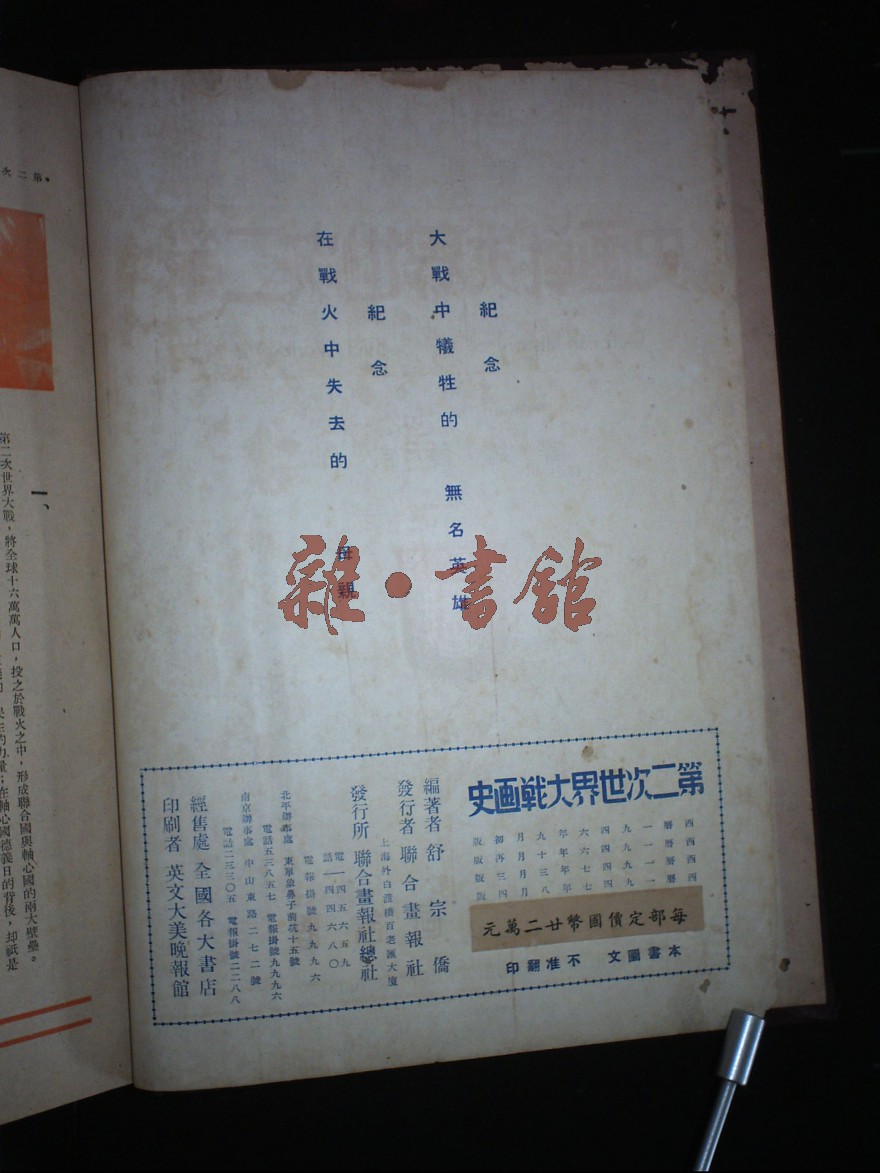 紀念
大戰中犧牲的 無名英雄
紀念
在戰火中失去的 母親
雜·書館
第二次世界大戰画史
西曆一九四六年九月初版
西曆一九四六年十月再版
西曆一九四七年三月三版
西曆一九四七年八月四版
每部定價國幣廿二萬元
本書圖文 不准翻印
編著者 舒宗僑
發行者 聯合畫報社
上海外白渡橋百老匯大廈
發行所 聯合畫報社總社
電話一四五六五九
一四四六八〇
電報掛號九九九六
北平辦事處 東單祿鼻子前坑十五號
電話五三八五七 電報掛號九九九六
南京辦事處 中山東路二七二號
電話二三三〇五 電報掛號二二八八
經售處 全國各大書店
印刷者 英文大美晚報館
第二次
一、
第二次世界大戰，將全球十六萬萬人口，投之於戰火之中，形成聯合國與軸心國的兩大壁壘。
民主的力量；在軸心國德義日的背後，却祇是